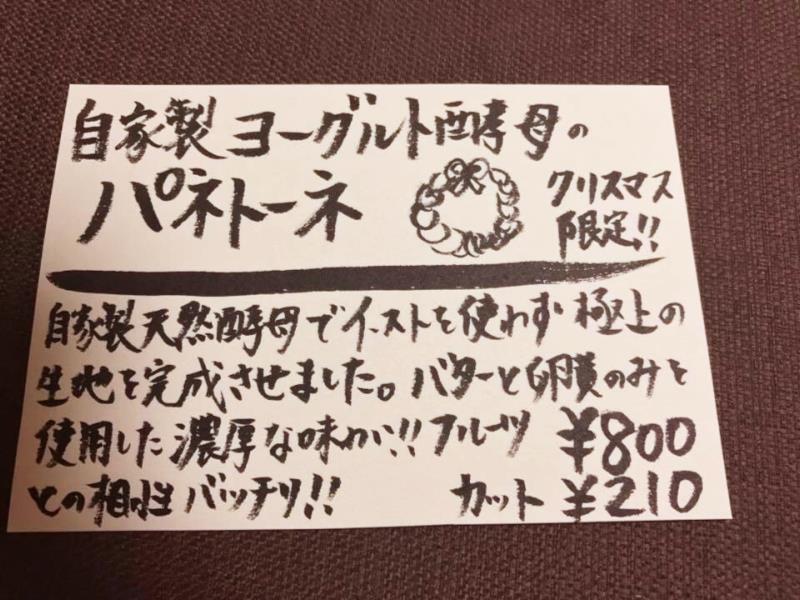 自家製ヨーグルト酵母の
パネトーネ
クリスマス
限定!!
自家製天然酵母でイーストを使わず極上の
生地を完成させました。バターと卵黄のみを
使用した濃厚な味わい!!フルーツ ¥800
との相性バッチリ!! カット ¥210